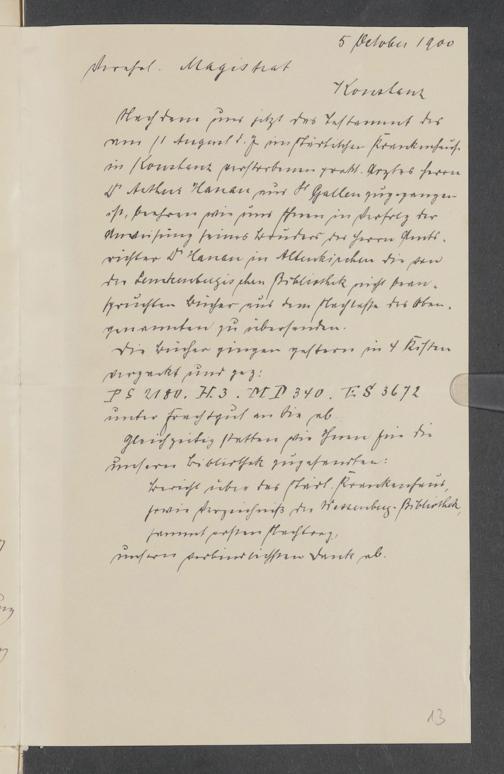 5 October 1900
Verehrl. Magistrat
Konstanz
Nachdem uns jetzt das Testament des
am 11 August d. J. im städtischen Krankenhause
in Konstanz verstorbenen prakt. Arztes Herrn
Dr Arthur Hanau aus St Gallen zugegangen
ist, beehren wir uns Ihnen in Verfolg der
Anweisung seines Bruders des Herrn Amts-
richter Dr Hanau in Altenkirchen die von
der Senckenbergischen Bibliothek nicht bean-
spruchten Bücher aus dem Nachlasse des Oben-
genannten zu übersenden.
Die Bücher gingen gestern in 4 Kisten
verpackt und gez:
P S 2180. H. 3. M P 340. F. S 3672
unter Frachtgut an Sie ab.
Gleichzeitig statten wir Ihnen für die
unserer Bibliothek zugesandten:
Bericht über das städt. Krankenhaus,
sowie Verzeichniß der Wessenberg-Bibliothek,
sammt ersten Nachtrag,
unsern verbindlichsten Dank ab.
13